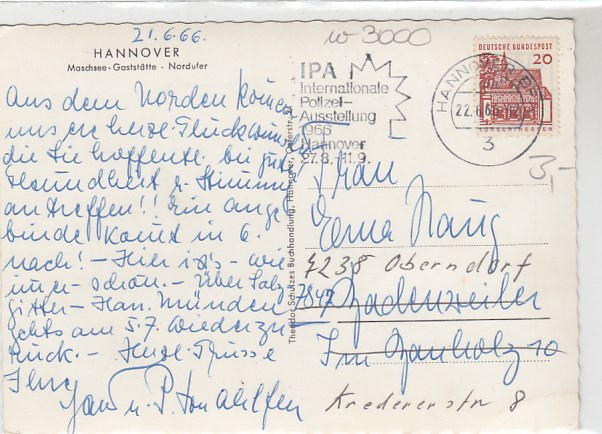 21.6.66.
HANNOVER
Maschsee-Gaststätte · Nordufer
Aus dem Norden kommen
uns herzl. Glückwünsche
die Sie hoffentl. bei guter
Gesundheit u. Stimmung
antreffen!! Ein Ange-
binde kommt in G.
nach! – Hier ist's – wie
immer – schön. – Über Salz-
gitter – Han. Münden
gehts am 5.7. wieder zu-
rück. – Herzl. Grüsse
Ihre
u. P.
Theodor Schulzes Buchhandlung, Hannover, Osterstr.
w 3000
IPA
Internationale
Polizei-
Ausstellung
1966
Hannover
27.8.-11.9.
HANNOVER
22.6.66
3
DEUTSCHE BUNDESPOST
20
LORSCH/HESSEN
3,-
Frau
Erna Haug
7238 Oberndorf
7847 Badenweiler
Im Ganholz 10
Kredererstr 8